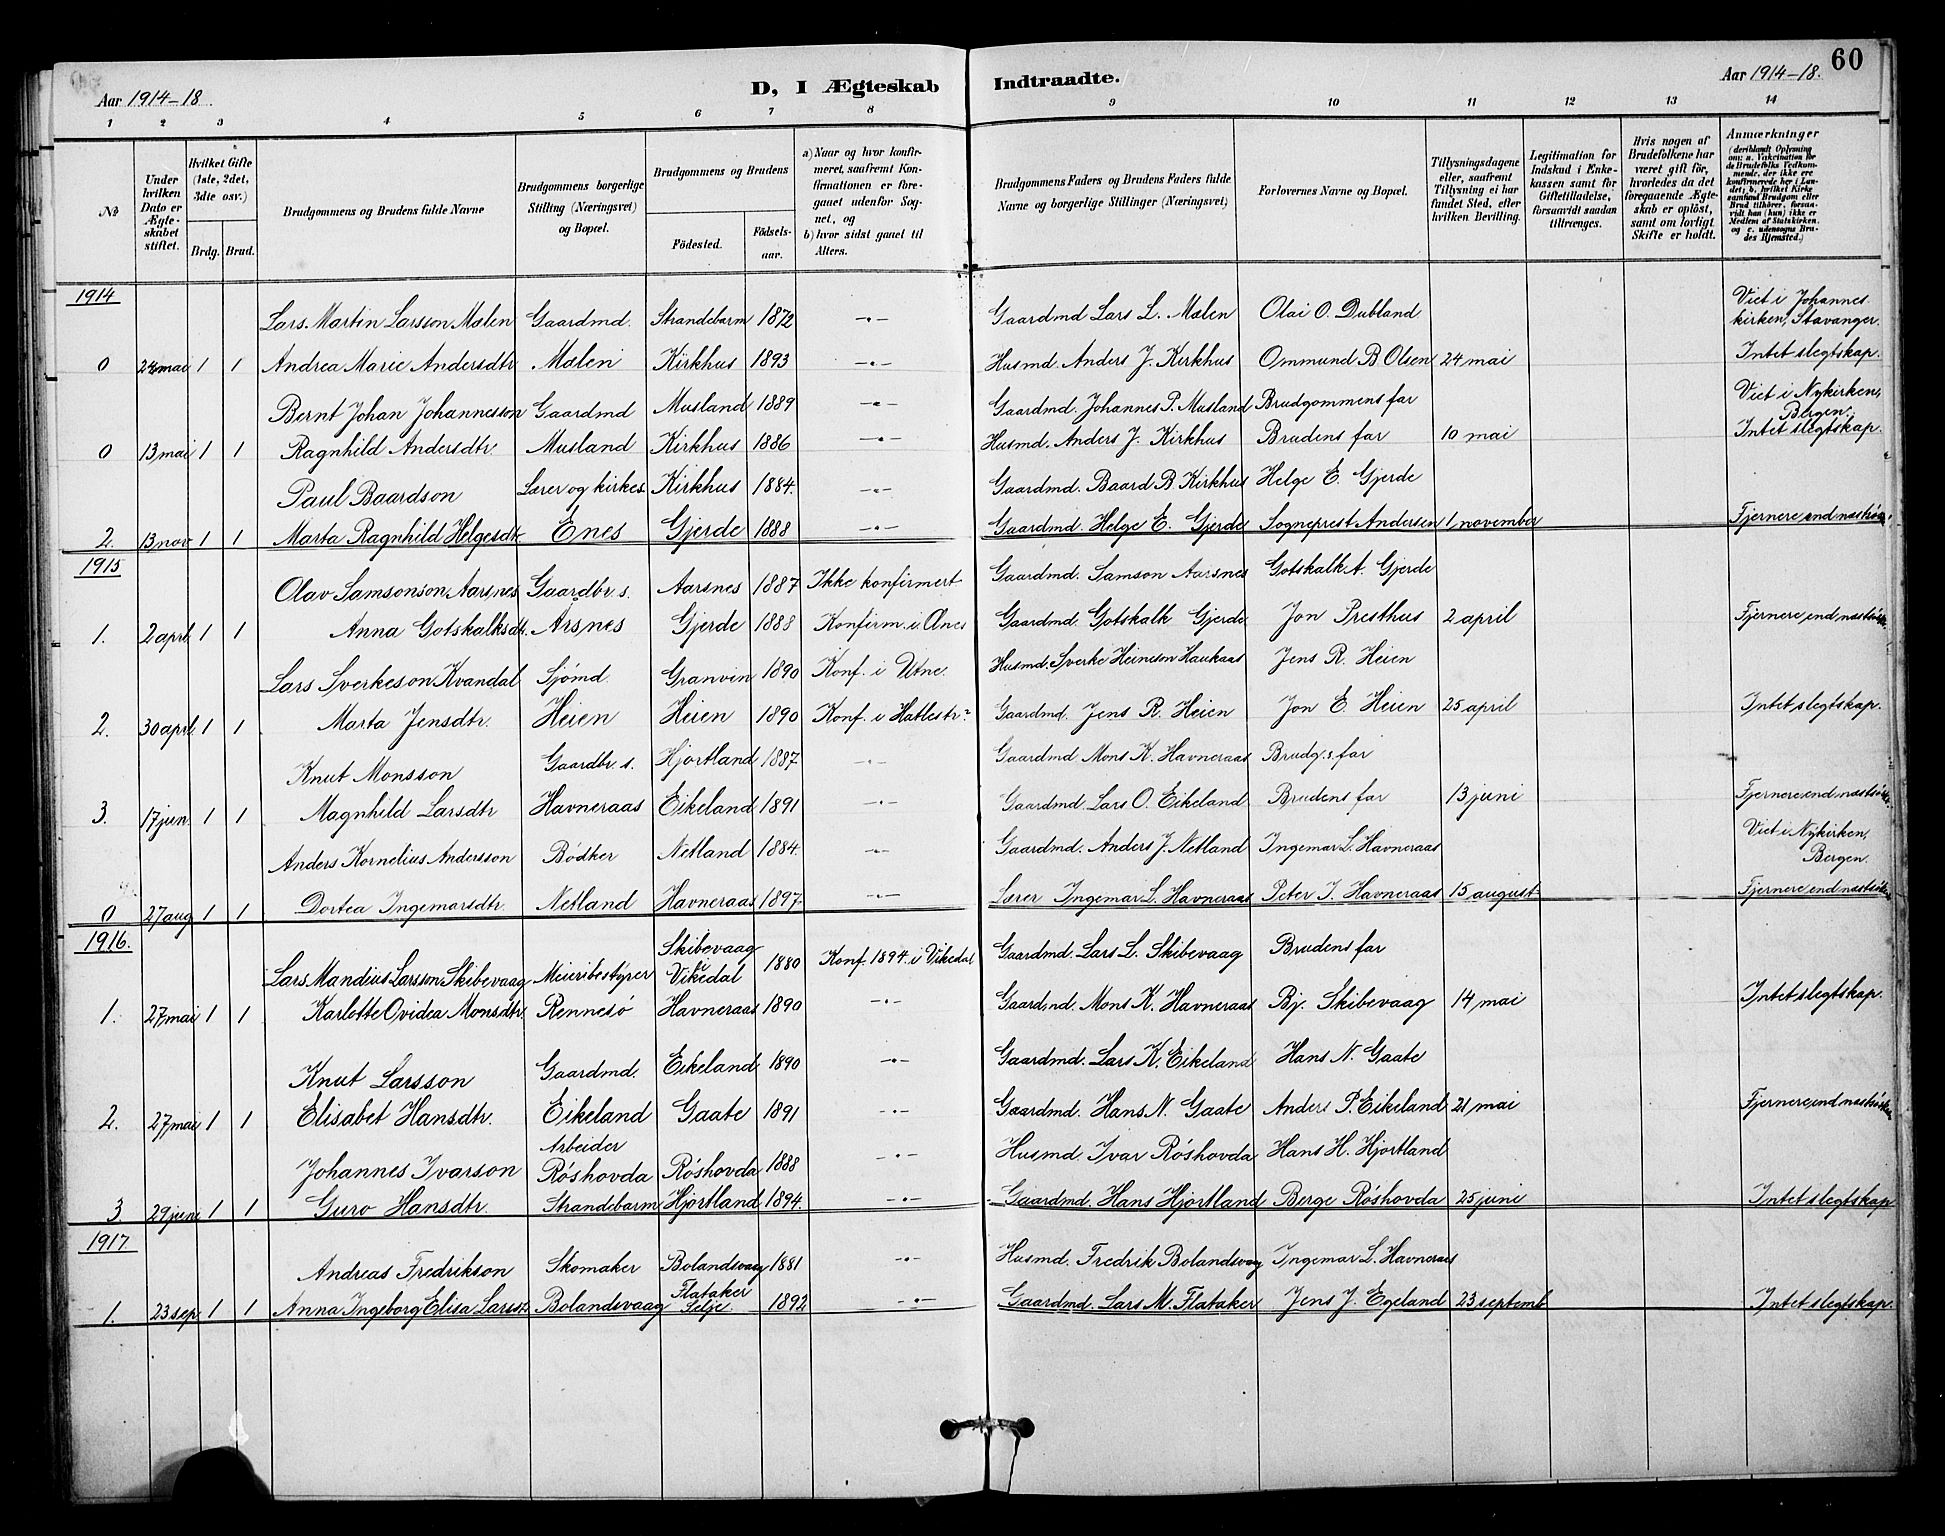 60
Aar 1914-18.
D, I Ægteskab Indtraadte.
Aar 1914-18.
1 2 3 4 5 6 7 8 9 10 11 12 13 14
№
Under hvilken Dato er Ægteskabet stiftet.
Hvilket Gifte (1ste, 2det, 3die osv.)
Brdg. Brud.
Brudgommens og Brudens fulde Navne
Brudgommens borgerlige Stilling (Næringsvei) og Bopæl.
Brudgommens og Brudens
Fødested.
Fødselsaar.
a) Naar og hvor konfirmeret, saafremt Konfirmationen er foregaaet udenfor Sognet, og
b) hvor sidst gaaet til Alters.
Brudgommens Faders og Brudens Faders fulde Navne og borgerlige Stillinger (Næringsvei)
Forlovernes Navne og Bopæl.
Tillysningsdagene eller, saafremt Tillysning ei har fundet Sted, efter hvilken Bevilling.
Legitimation for Indskud i Enkekassen samt for Giftetilladelse, forsaavidt saadan tiltrænges.
Hvis nogen af Brudefolkene har været gift før, hvorledes da det foregaaende Ægteskab er opløst, samt om lovligt Skifte er holdt.
Anmærkninger
(deriblandt Oplysning om: a. Vakcination for de Brudefolks Vedkommende, der ikke ere konfirmerede her i Landet; b. hvilket Kirkesamfund Brudgom eller Brud tilhører, forsaavidt han (hun) ikke er Medlem af Statskirken, og c. udensogns Brudes Hjemsted.)
1914
Lars Martin Larsson Mælen Gaardmd. Strandebarm 1872 -"- Gaardmd Lars L. Mælen Olai O. Dubland Viet i Johanneskirken, Stavanger.
0 24 mai 1 1 Andrea Marie Andersdtr Mælen Kirkhus 1893 -"- Husmd Anders J. Kirkhus Ommund B Olsen 24 mai Intet slegtskap.
Bernt Johan Johannesson Gaardmd Musland 1889 -"- Gaardmd. Johannes P. Musland Brudgommens far Viet i Nykirken, Bergen.
0 13 mai 1 1 Ragnhild Andersdtr. Musland Kirkhus 1886 -"- Husmd. Anders J. Kirkhus Brudens far 10 mai Intet slegtskap.
Paul Baardson Lærer og kirkes. Kirkhus 1884. -"- Gaardmd. Baard B Kirkhus Helge E. Gjerde
2. 13 nov 1 1 Marta Ragnhild Helgesdtr. Enes Gjerde 1888 -"- Gaardmd. Helge E. Gjerde Sogneprest Andersen 1 november Fjernere end
1915
Olav Samsonson Aarsnes Gaardbr. s. Aarsnes 1887 Ikke konfirmert Gaardmd. Samson Aarsnes Gotskalk A. Gjerde
1. 2 april 1 1 Anna Gotskalksdtr. Årsnes Gjerde 1888 Konfirm. i Ænes Gaardmd. Gotskalk Gjerde Jon Presthus 2 april Fjernere end
Lars Sverkeson Kvandal Sjømd. Granvin 1890 Konf. i Utne. Husmd. Sverke Heineson Haukaas Jens R. Heien
2. 30 april 1 1 Marta Jensdtr. Heien Heien 1890 Konf. i Hatlestr? Gaardmd. Jens R. Heien Jon E. Heien 25 april Intet slegtskap.
Knut Monsson Gaardbr. s. Hjortland 1887 -"- Gaardmd Mons K. Havneraas Brudg. s. far
3. 17 juni 1 1 Magnhild Larsdtr Havneraas Eikeland 1891 -"- Gaardmd. Lars O. Eikeland Brudens far 13 juni Fjernere end
Anders Kornelius Andersson Bødker Netland 1884. -"- Gaardmd. Anders J. Netland Ingemar L. Havneraas Viet i Nykirken, Bergen.
0 27 aug 1 1 Dortea Ingemarsdtr. Netland Havneraas 1897 -"- Lærer Ingemar L. Havneraas Peter I. Havneraas 15 august Fjernere end
1916.
Lars Mandius Larsson Skibevaag Meieribestyrer Skibevaag i Vikedal 1880 Konf. 1894. i Vikedal Gaardmd. Lars L. Skibevaag Brudens far
1. 27 mai 1 1 Karlotte Ovidea Monsdtr. Rennesø Havneraas 1890 -"- Gaardmd. Mons K. Havneraas Bj. Skibevaag 14 mai Intet slegtskap.
Knut Larsson Gaardmd. Eikeland 1890 -"- Gaardmd. Lars K. Eikeland Hans N. Gaate
2. 27 mai 1 1 Elisabet Hansdtr. Eikeland Gaate 1891 -"- Gaardmd. Hans N. Gaate Anders P. Eikeland 21 mai Fjernere end
Johannes Ivarson Arbeider Røshovda Røshovda 1888 -"- Husmd Ivar Røshovda Hans H. Hjortland
3 29 juni 1 1 Guro Hansdtr. Strandebarm Hjortland 1894. -"- Gaardmd. Hans Hjortland Berge Røshovda 25 juni Intet slegtskap
1917
Andreas Fredrikson Skomaker Bolandsvaag 1881 -"- Husmd. Fredrik Bolandsvaag Ingemar L. Havneraas
1. 23 sep 1 1 Anna Ingeborg Elisa Larsdtr. Bolandsvaag Flataker Selje 1892 -"- Gaardmd. Lars M. Flataker Jens J. Egeland 23 septemb Intet slegtskap.